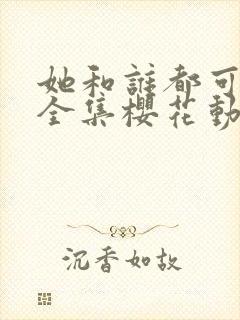 她和誰都可
全集櫻花動
沉香如故